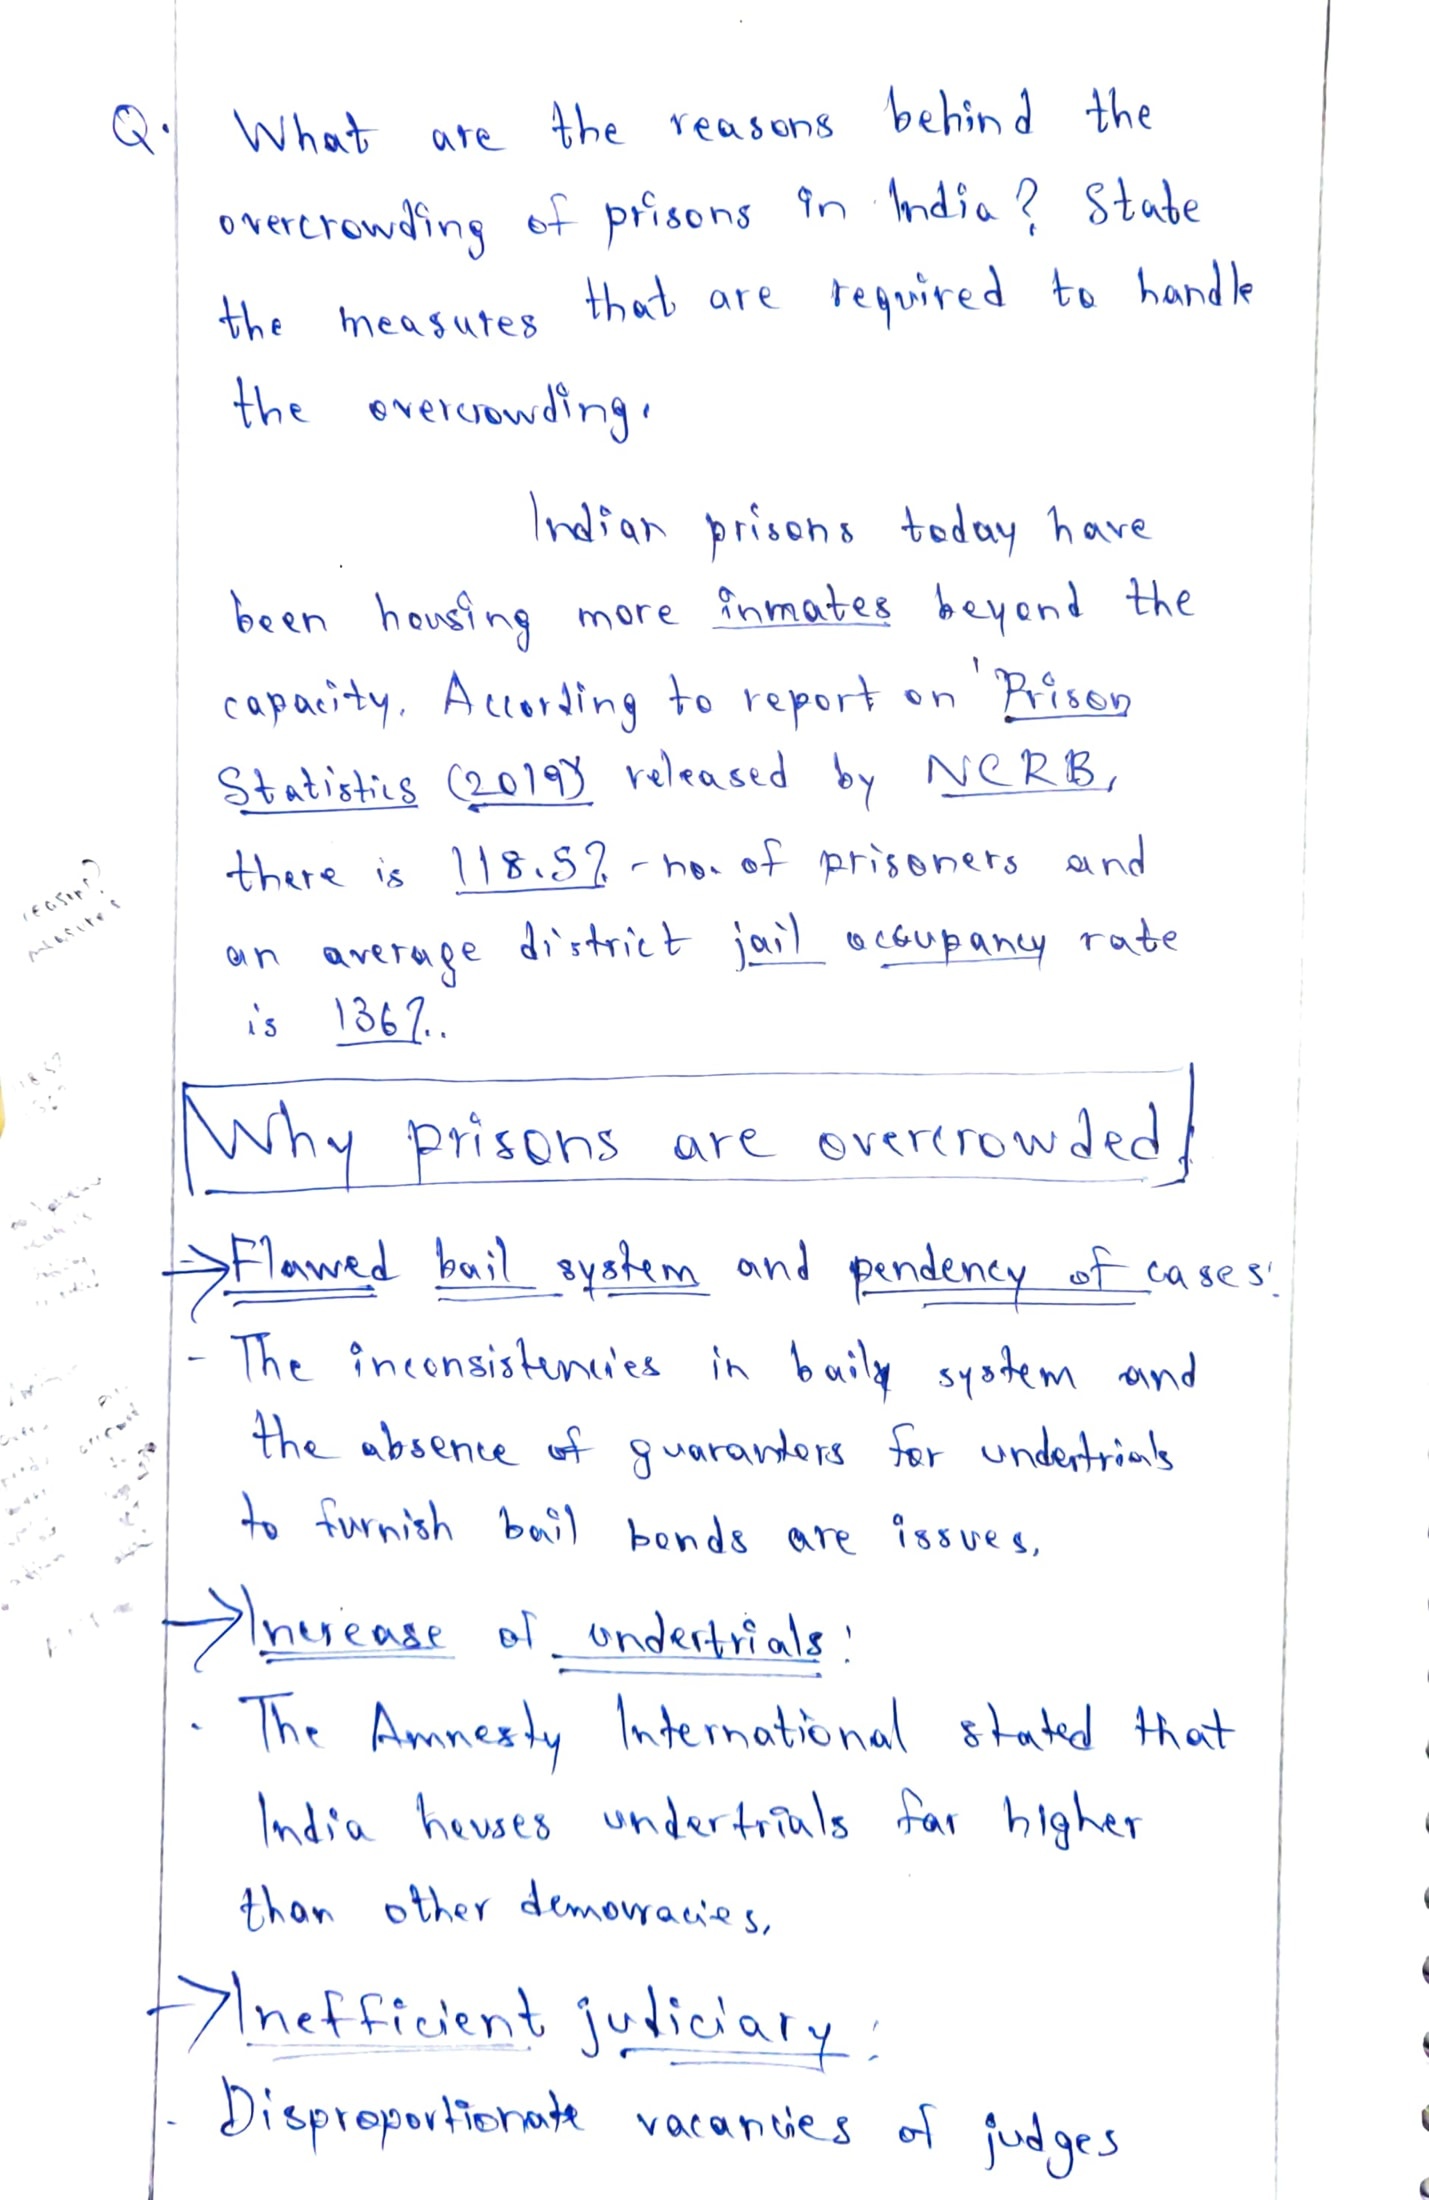 Q. What are the reasons behind the
overcrowding of prisons in India? State
the measures that are required to handle
the overcrowding.
Indian prisons today have
been housing more inmates beyond the
capacity. According to report on 'Prison
Statistics (2019)' released by NCRB,
there is 118.5% - no. of prisoners and
an average district jail occupancy rate
is 136%.
Why prisons are overcrowded
→ Flawed bail system and pendency of cases:
- The inconsistencies in bail system and
the absence of guarantors for undertrials
to furnish bail bonds are issues.
→ Increase of undertrials:
. The Amnesty International stated that
India houses undertrials far higher
than other democracies.
→ Inefficient judiciary:
- Disproportionate vacancies of judges
reasons?
measures